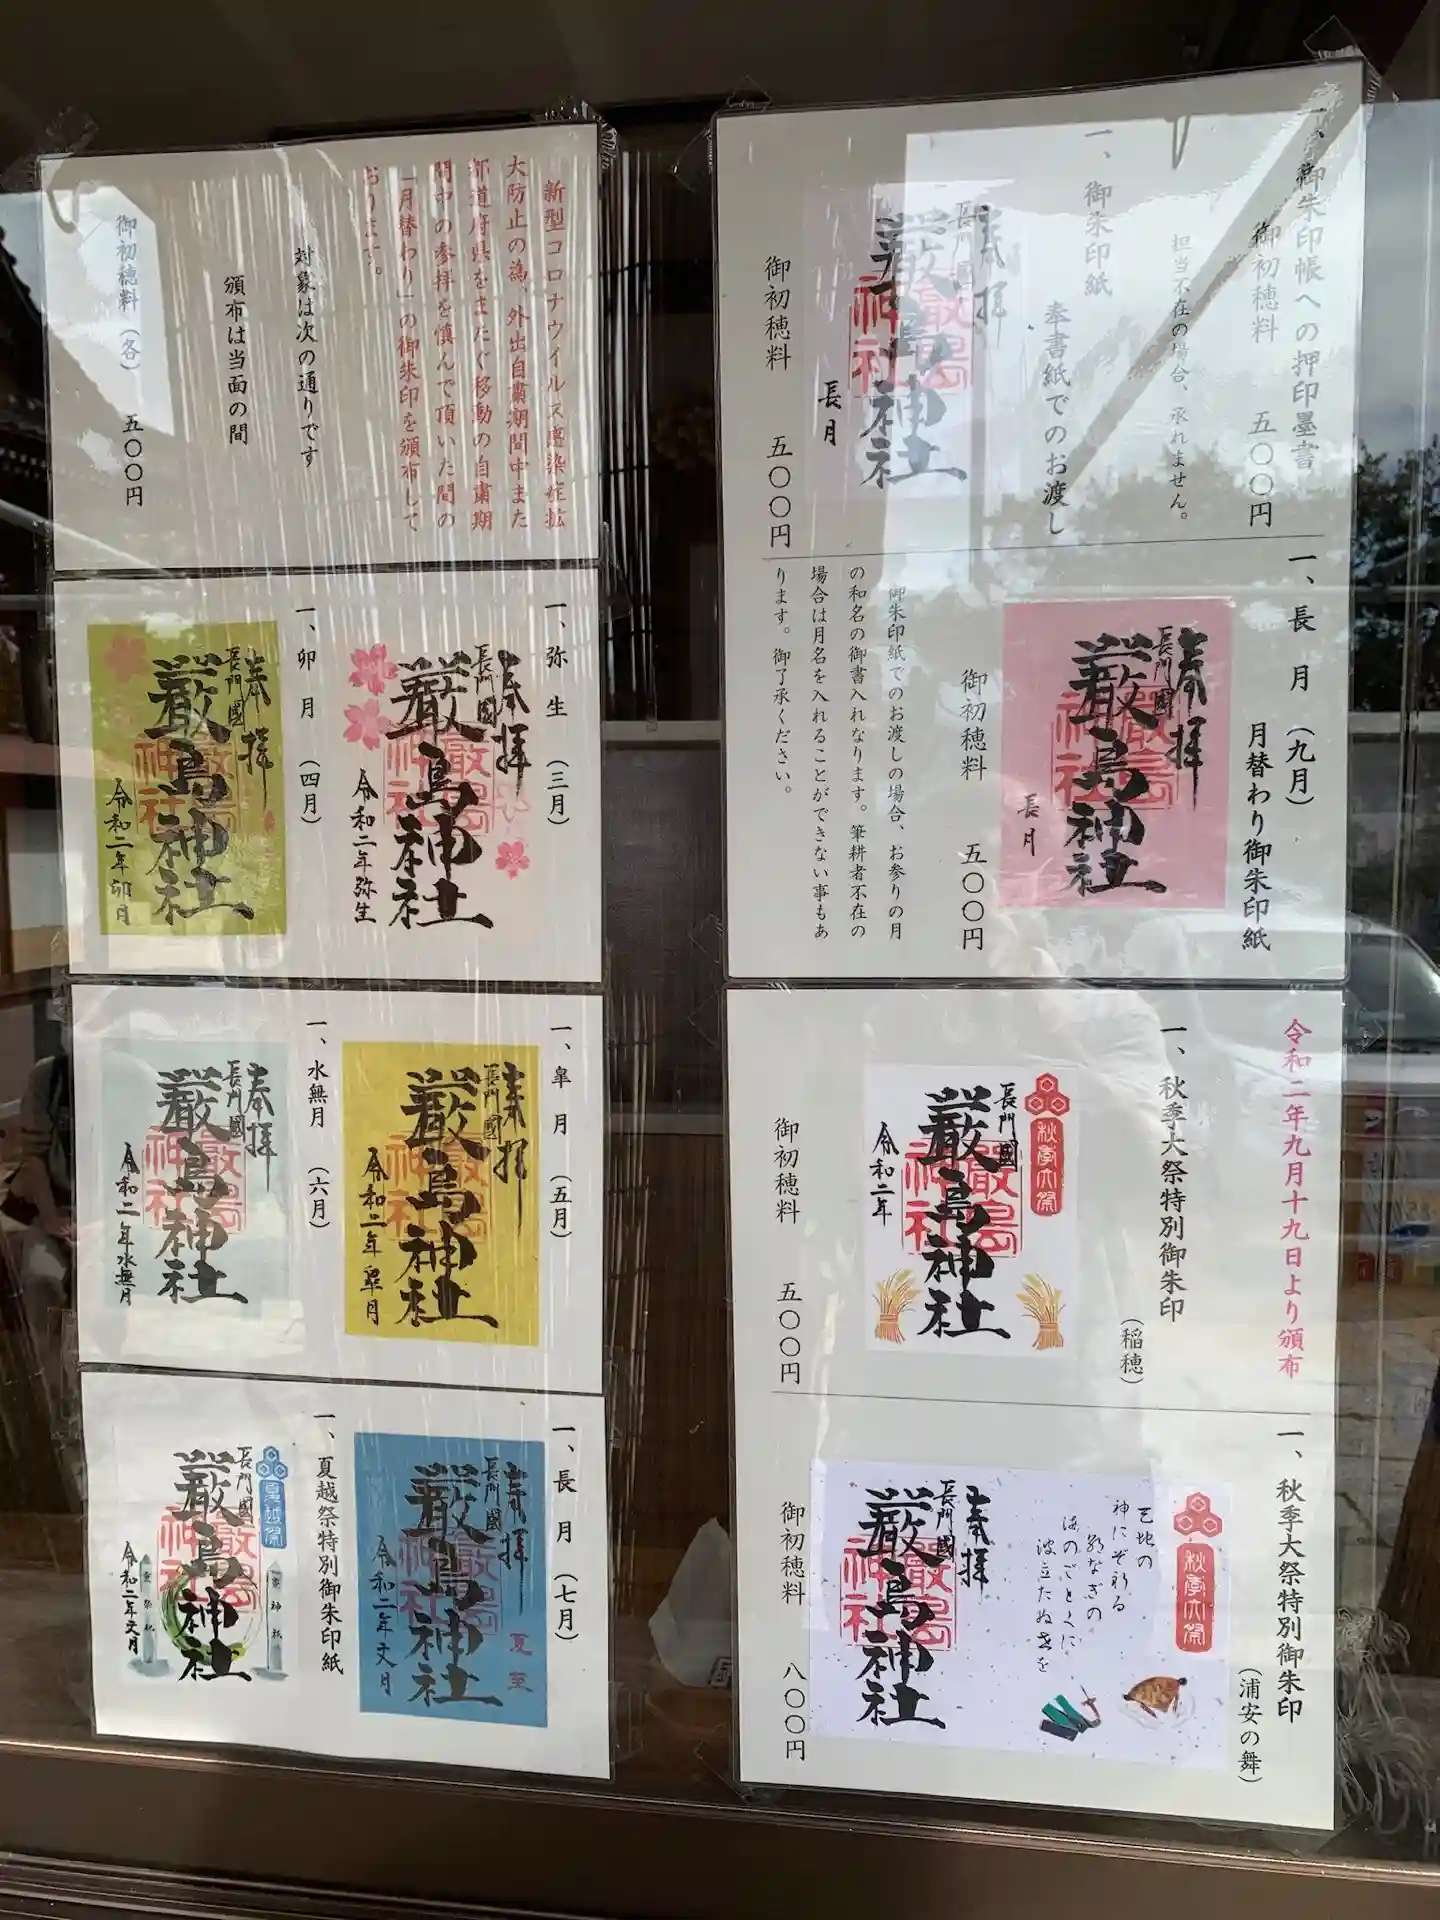 一、御朱印帳への押印墨書
御初穂料 五〇〇円
担当不在の場合、承れません。
一、御朱印紙
奉書紙でのお渡し
奉拝
長門國
厳島神社
長月
御初穂料 五〇〇円
一、長月(九月)
月替わり御朱印紙
奉拝
長門國
厳島神社
長月
御初穂料 五〇〇円
御朱印紙でのお渡しの場合、お参りの月
の和名の御書入れなります。筆耕者不在の
場合は月名を入れることができない事もあ
ります。御了承ください。
令和二年九月十九日より頒布
一、秋季大祭特別御朱印
(稲穂)
秋季大祭
長門國
厳島神社
令和二年
御初穂料 五〇〇円
一、秋季大祭特別御朱印
(浦安の舞)
秋季大祭
天地の
神にぞ祈る
朝なぎの
海のごとくに
波立たぬ世を
奉拝
長門國
厳島神社
御初穂料 八〇〇円
新型コロナウイルス感染症拡
大防止の為、外出自粛期間中また
都道府県をまたぐ移動の自粛期
間中の参拝を慎んで頂いた間の
「月替わり」の御朱印を頒布して
おります。
対象は次の通りです
頒布は当面の間
御初穂料(各) 五〇〇円
一、弥生(三月)
奉拝
長門國
厳島神社
令和二年弥生
一、卯月(四月)
奉拝
長門國
厳島神社
令和二年卯月
一、皐月(五月)
奉拝
長門國
厳島神社
令和二年皐月
一、水無月(六月)
奉拝
長門國
厳島神社
令和二年水無月
一、長月(七月)
奉拝
長門國
夏至
厳島神社
令和二年文月
一、夏越祭特別御朱印紙
夏越祭
長門國
厳島神社
令和二年文月